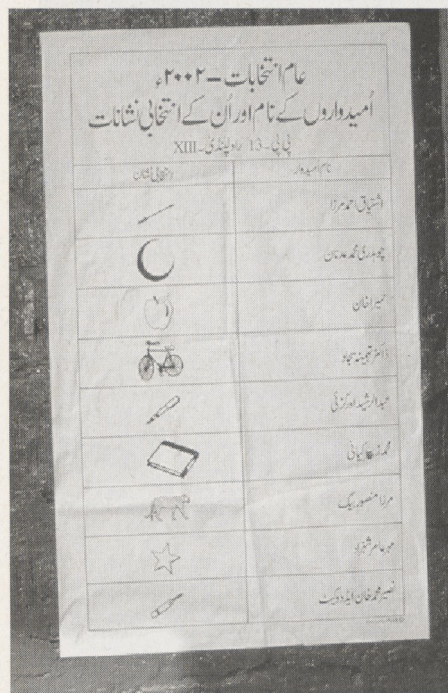 عام انتخابات - ۲۰۰۲ء
اُمیدواروں کے نام اور اُن کے انتخابی نشانات
پی پی - 13 راولپنڈی - XIII
نام امیدوار انتخابی نشان
اشتیاق احمد مرزا
چوہدری محمد عدنان
حمیرا خان
ڈاکٹر تہمینہ سجاد
عبدالرشید اورکزئی
محمد کیانی
مرزا منصور بیگ
مہر عامر شہزاد
نصیر محمد خان ایڈووکیٹ